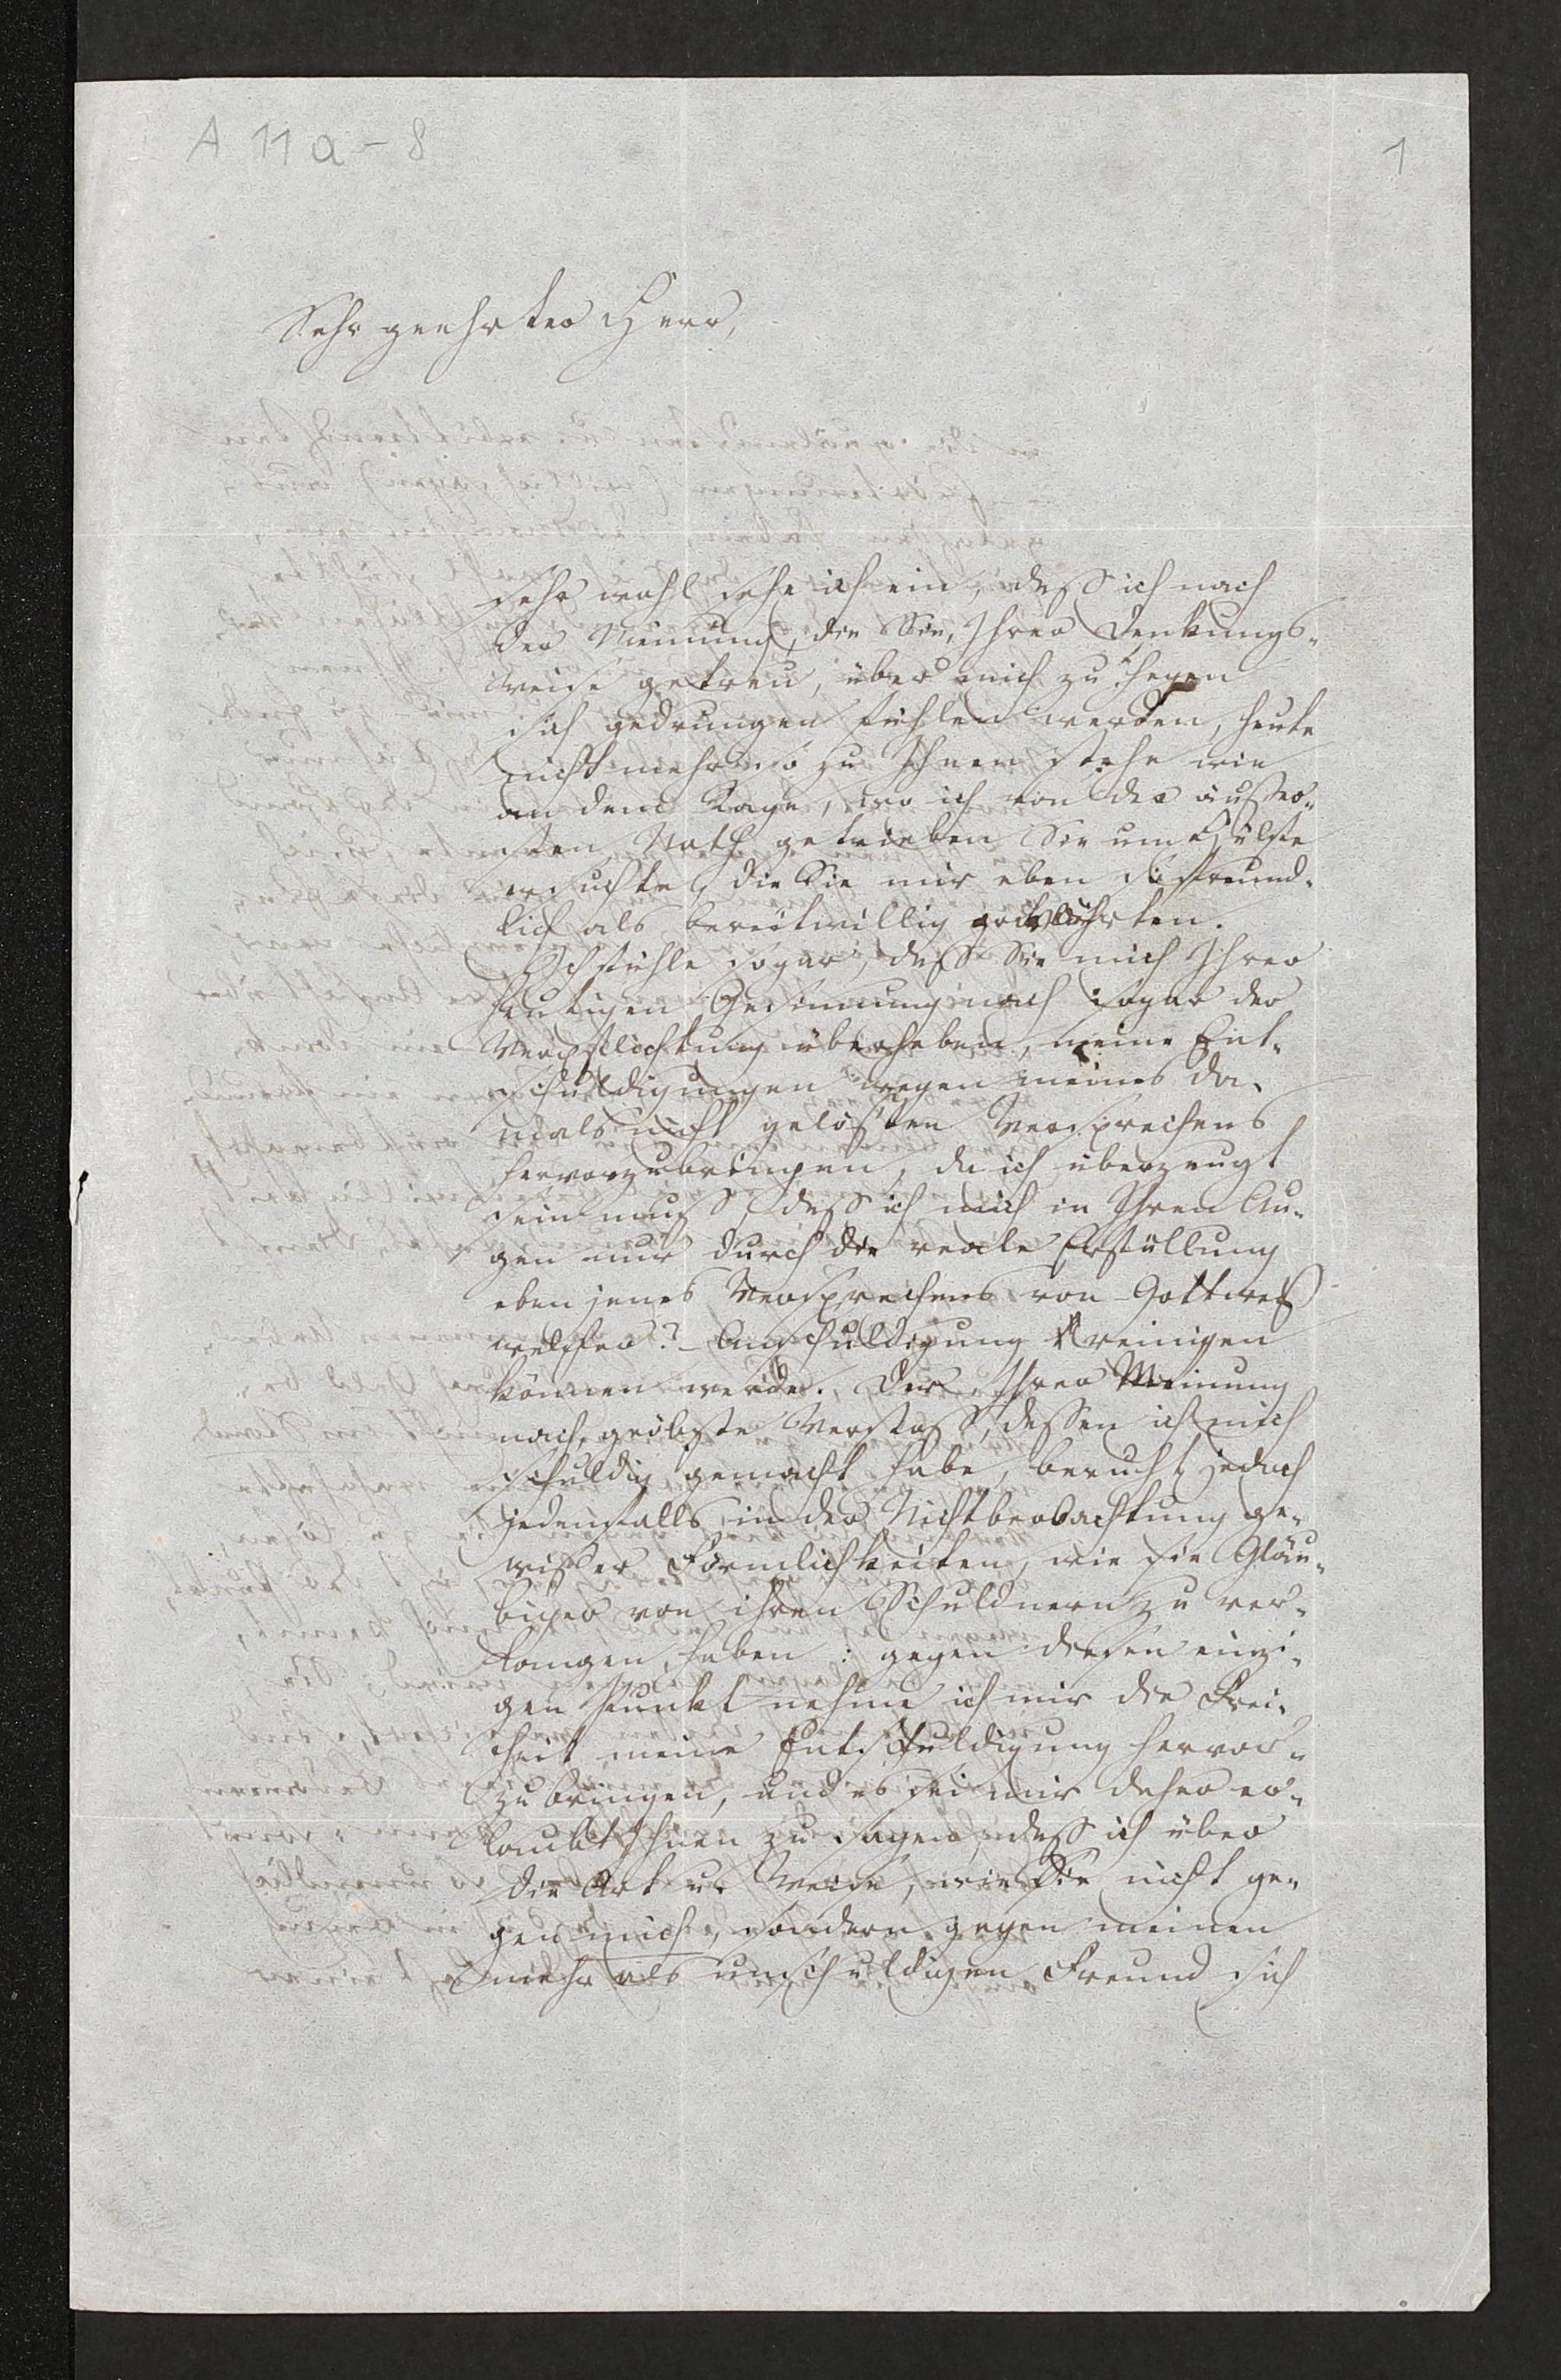 A 11a - 8
1
Sehr geehrter Herr,
sehr wohl sehe ich ein, daß ich nach
der Meinung, die Sie, Ihrer Denkungs-
weise getreu, über mich zu hegen
sich gedrungen fühlen werden, heute
nicht mehr so zu Ihnen stehe wie
an dem Tage, wo ich von der äußer-
sten Noth getrieben Sie um Hülfe
ersuchte, die Sie mir eben so freund-
lich als bereitwillig gewährten.
Ich fühle sogar, daß Sie mich Ihrer
heutigen Gesinnung nach sogar der
Verpflichtung überheben, meine Ent-
schuldigungen wegen meines da-
mals nicht gelösten Versprechens
hervorzubringen, da ich überzeugt
sein muß, daß ich mich in Ihren Au-
gen nur durch die reale Erfüllung
eben jenes Versprechens von – Gott weiß
welcher? – Anschuldigung reinigen
können werde. Der, Ihrer Meinung
nach, gröbste Verstoß, dessen ich mich
schuldig gemacht habe, beruht jedoch
jedenfalls in der Nichtbeobachtung ge-
wisser Förmlichkeiten, wie sie Gläu-
biger von ihren Schuldnern zu ver-
langen haben: gegen diesen einzi-
gen Punkt nehme ich mir die Frei-
heit meine Entschuldigung hervor-
zubringen, und es sei mir daher er-
laubt Ihnen zu sagen, daß ich über
die Art u. Weise, wie Sie nicht ge-
gen mich, sondern gegen meinen
mehr als unschuldigen Freund sich